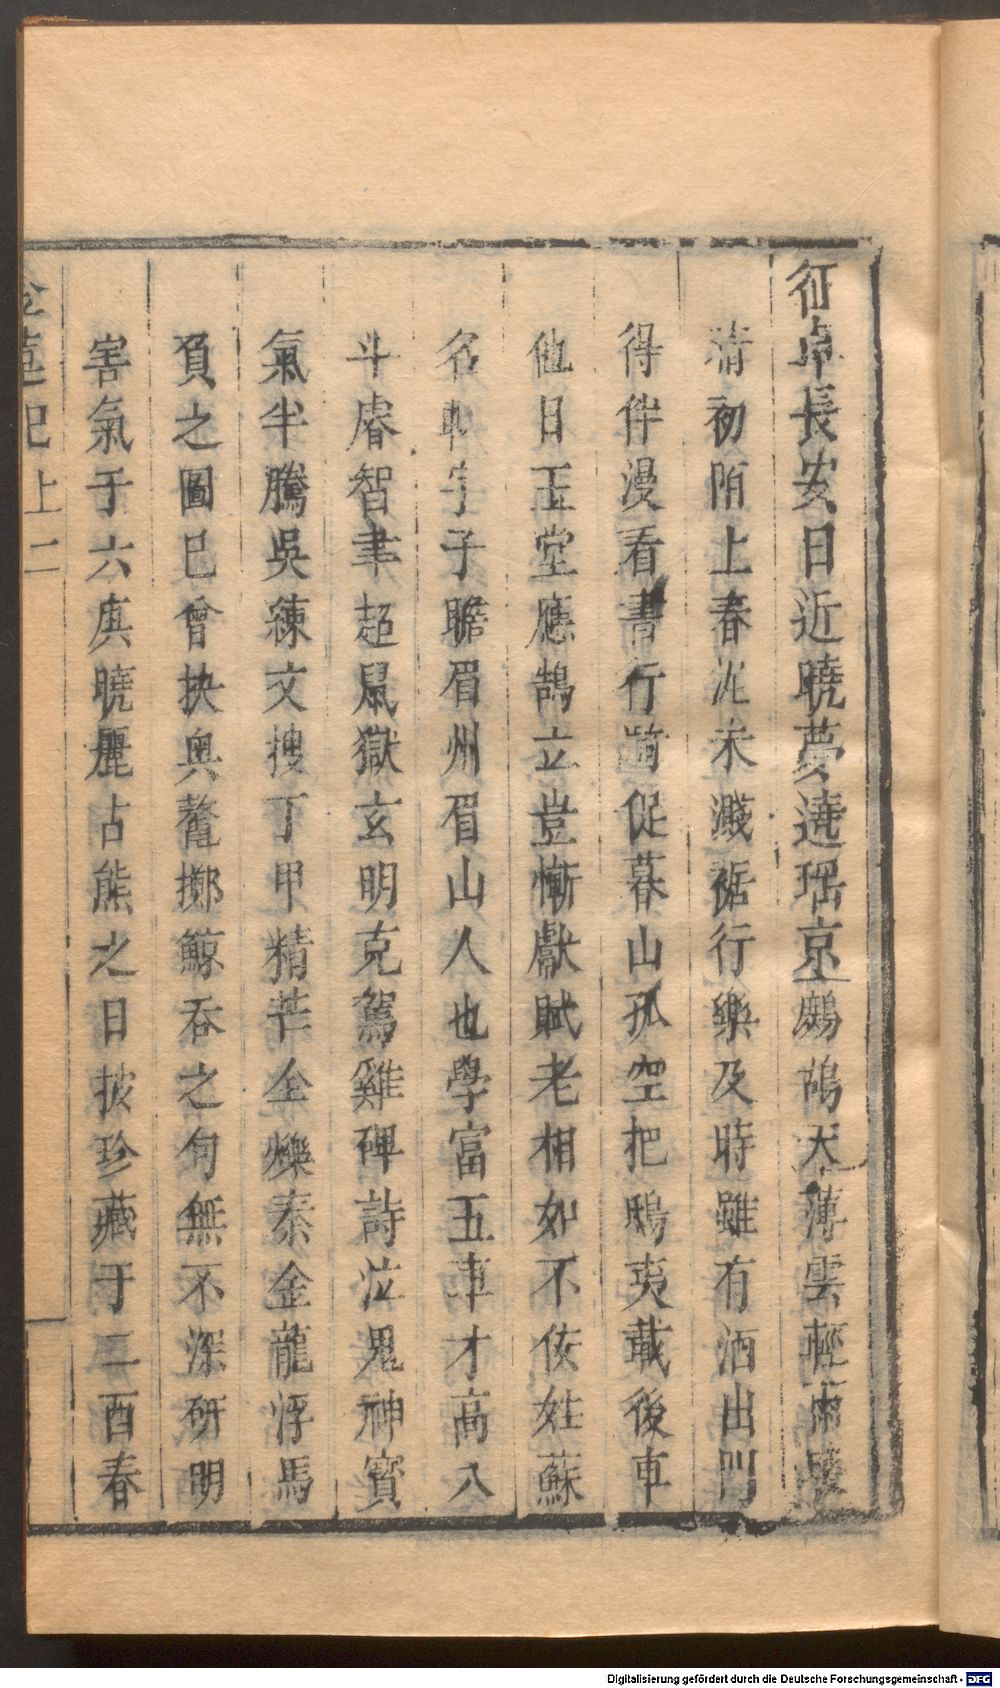 征車長安日近曉夢遶瑤京鷓鴣天薄雲輕雨
清初陌上春泥未濺裾行樂及時雖有酒出門
得伴漫看書行觴促暮山孤空把鴟夷載後車
他日玉堂應鵠立豈慚獻賦老相如不佞姓蘇
名軾字子瞻眉州眉山人也學富五車才高八
斗睿智聿超鼠獄玄明克駕雞碑詩泣鬼神寶
氣半騰吳練文搜丁甲精芒全爍秦金龍浮馬
負之圖已曾抉奥鰲擲鯨吞之句無不深研明
害氣于六庚曉麗占熊之日披珍藏于二酉春
金蓮記上二
Digitalisierung gefördert durch die Deutsche Forschungsgemeinschaft - DFG